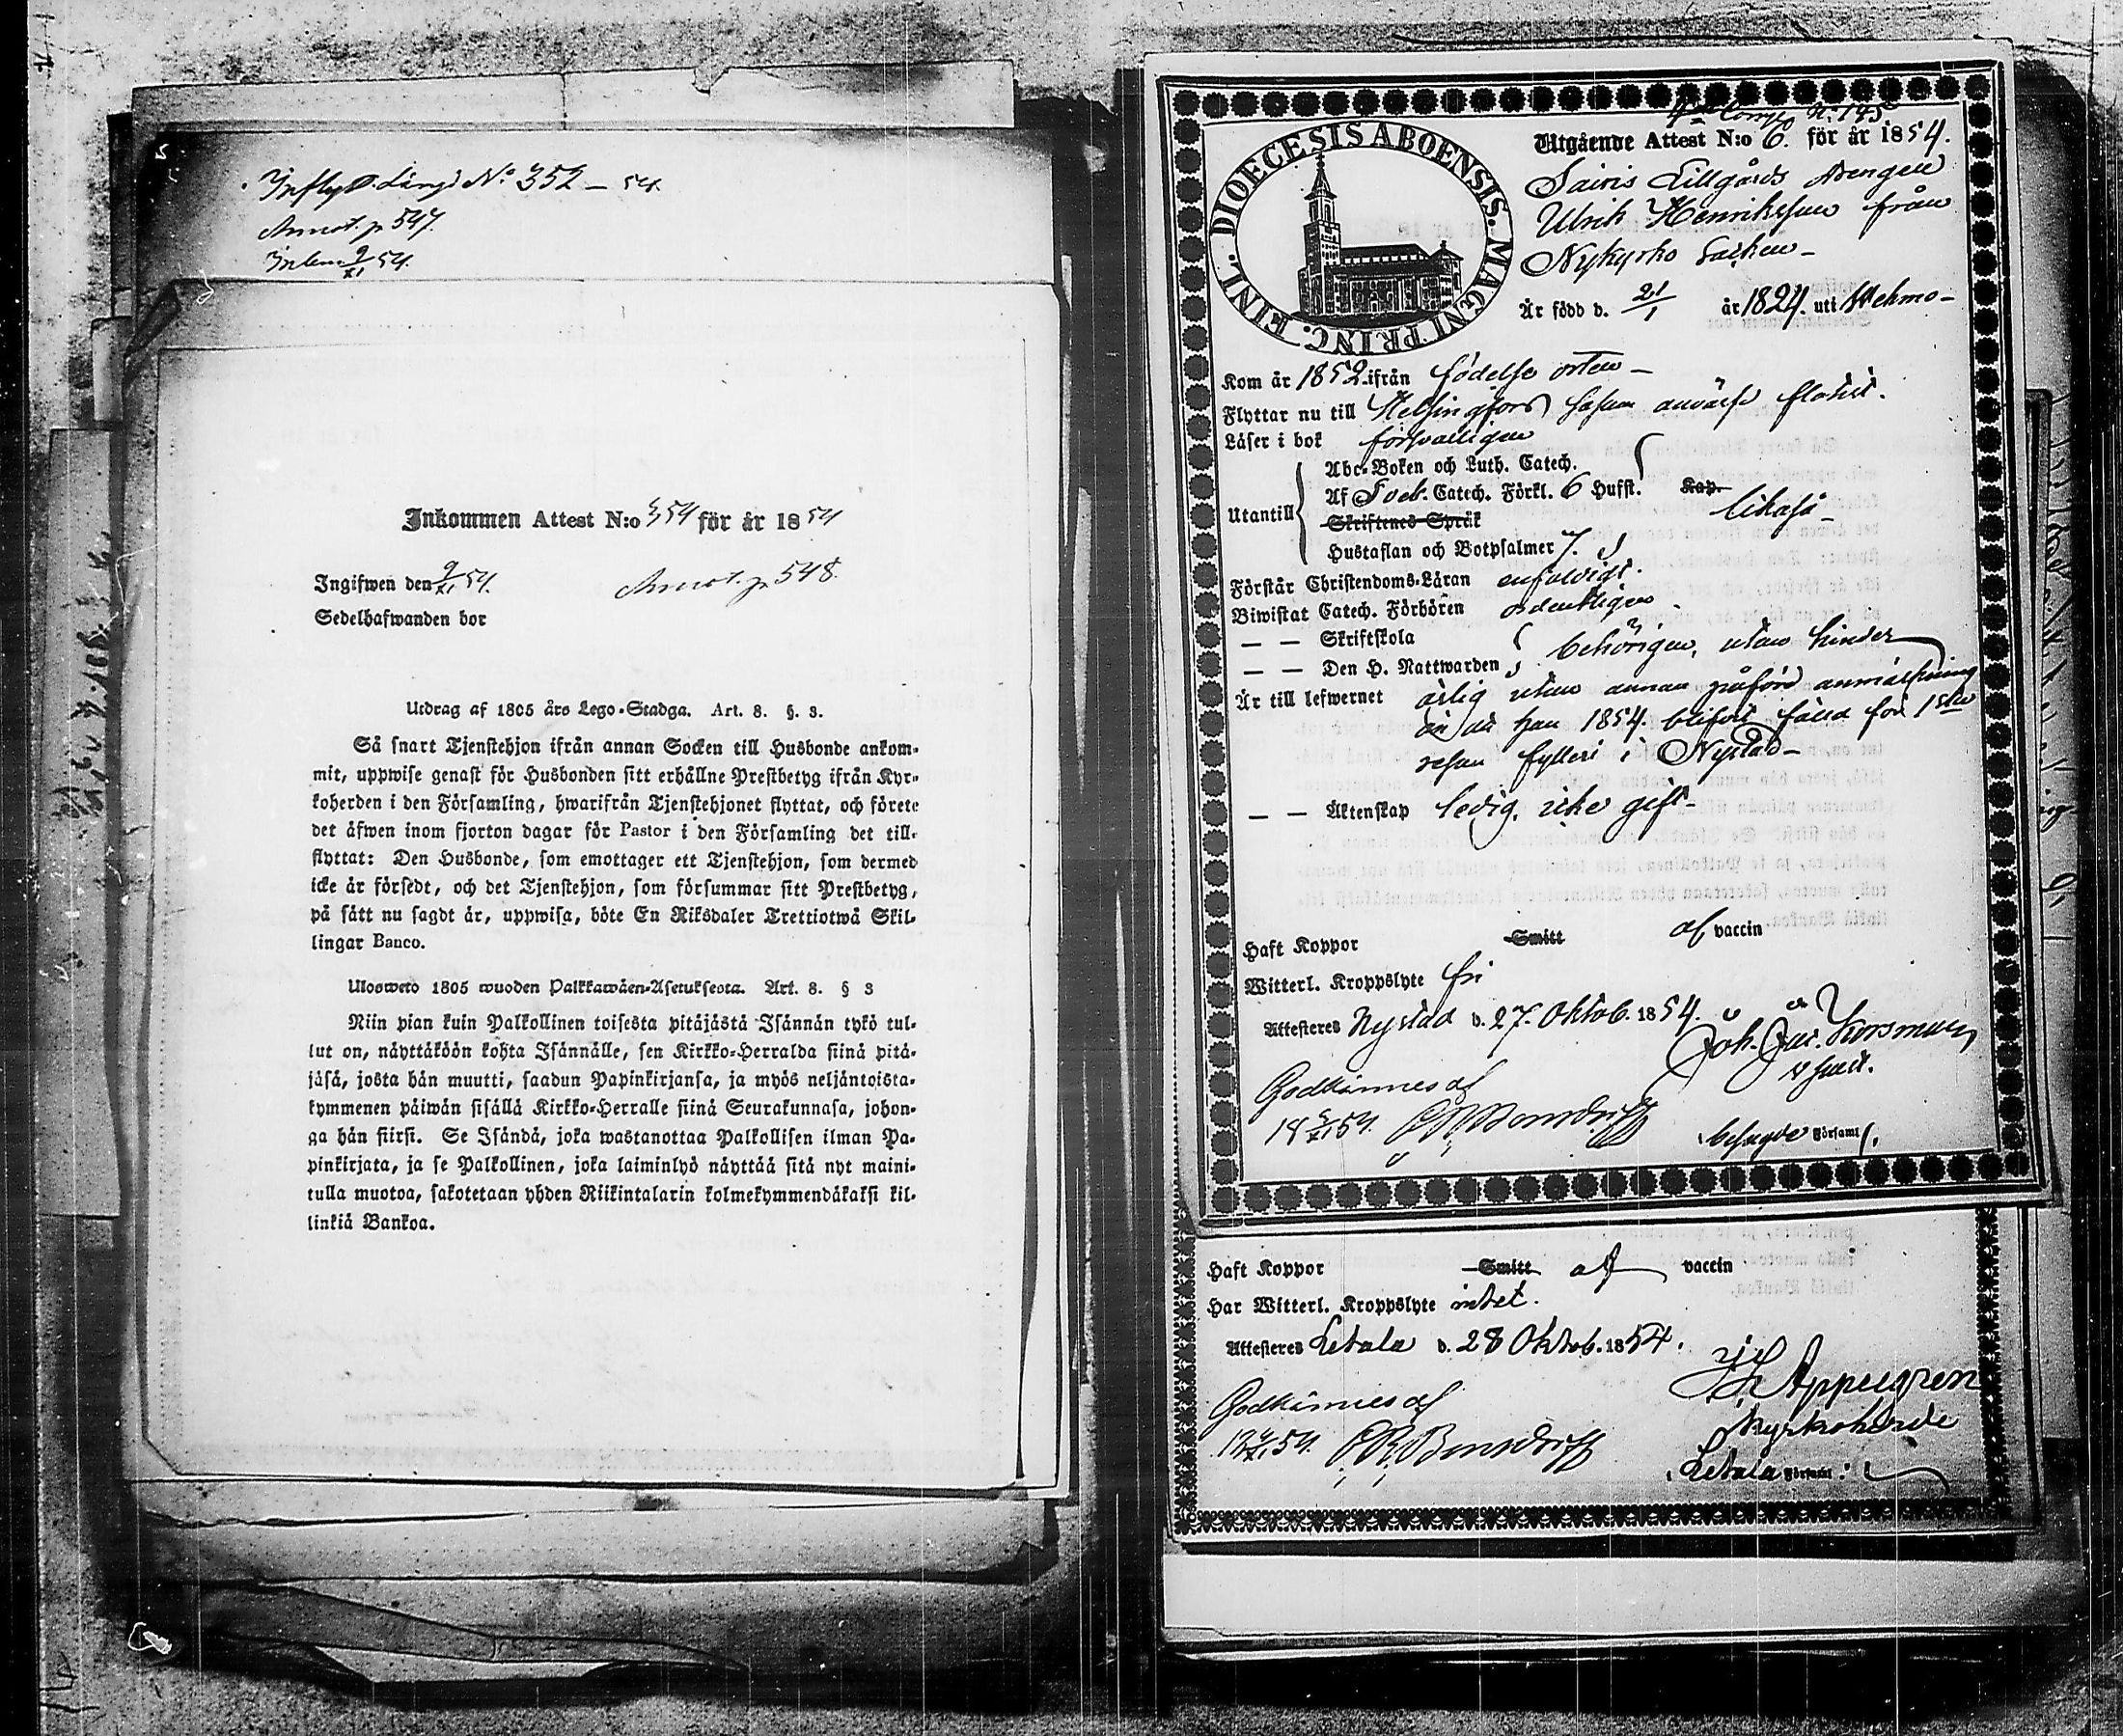 Inflyttn. Längd No 352 – 54.
Annot. p 547.
Inlem. 9/XI 54.
Inkommen Attest N:o 354 för år 1854
Ingifwen den 9/XI 54. Annot. p. 548.
Sedelhafwanden bor
Utdrag af 1805 års Lego-Stadga. Art. 8. §. 3.
Så snart Tjenstehjon ifrån annan Socken till Husbonde ankom-
mit, uppwise genast för Husbonden sitt erhållne Prestbetyg ifrån Kyr-
koherden i den Församling, hwarifrån Tjenstehjonet flyttat, och förete
det äfwen inom fjorton dagar för Pastor i den Församling det till-
flyttat: Den Husbonde, som emottager ett Tjenstehjon, som dermed
icke är försedt, och det Tjenstehjon, som försummar sitt Prestbetyg,
på sätt nu sagdt är, uppwisa, böte En Riksdaler Trettiotwå Skil-
lingar Banco.
Uloswetо 1805 wuoden Palkkawäen-Asetuksesta. Art. 8. § 3
Niin pian kuin Palkollinen toisesta pitäjästä Isännän tykö tul-
lut on, näyttäköön kohta Isännälle, sen Kirkko-Herralda siinä pitä-
jäsä, josta hän muutti, saadun Papinkirjansa, ja myös neljäntoista-
kymmenen päiwän sisällä Kirkko-Herralle siinä Seurakunnasa, johon-
ga hän siirsi. Se Isändä, joka wastanottaa Palkollisen ilman Pa-
pinkirjata, ja se Palkollinen, joka laiminlyö näyttää sitä nyt maini-
tulla muotoa, sakotetaan yhden Riikintalarin kolmekymmendäkaksi kil-
linkiä Bankoa.
N. 145
DIOECESIS ABOENSIS. MAGNI PRINC. FINL.
Utgående Attest N:o 6. för år 1854.
Sairis Lillgårds drengen
Ulrik Henriksson från
Nykyrko Socken –
Är född d. 21/1 år 1824. uti Wehmo –
Kom år 1852 ifrån födelse orten –
Flyttar nu till Helsingfors såsom
Läser i bok försvarligen
Abc-Boken och Luth. Catech.
Af Sveb. Catech. Förkl. 6 Hufst. Kap.
Utantill Skriftenes Språk likaså –
Hustaflan och Botpsalmer 7.
Förstår Christendoms-Läran enfaldigt.
Biwistat Catech. Förhören ordentligen
— — Skriftskola behörigen, utan hinder
— — Den H. Nattwarden
Är till lefwernet ärlig utan annan påförd anmärkning
än att han 1854. blifvit fälld för 1sta
resan fylleri i Nystad –
— — Äktenskap ledig, icke gift –
Haft Koppor Smitt af vaccin
Witterl. Kroppslyte fri
Attesteres Nystad d. 27. Oktob. 1854.
Joh. Jac. Korsman
Godkännes af
18 54.
besagde Församl.
Haft Koppor Smitt af vaccin
Har Witterl. Kroppslyte intet.
Attesteres Letala d. 28 Oktob. 1854.
Appelgren
Godkännes af Kyrkoherde
54.
Letala Församl.